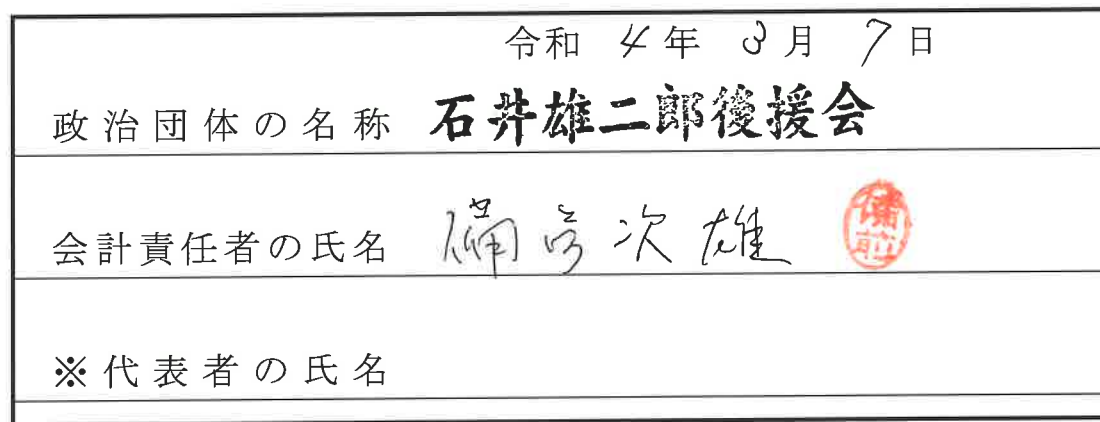 令和 4年 3月 7日
政治団体の名称 石井雄二郎後援会
会計責任者の氏名 備前次雄 備前
※代表者の氏名